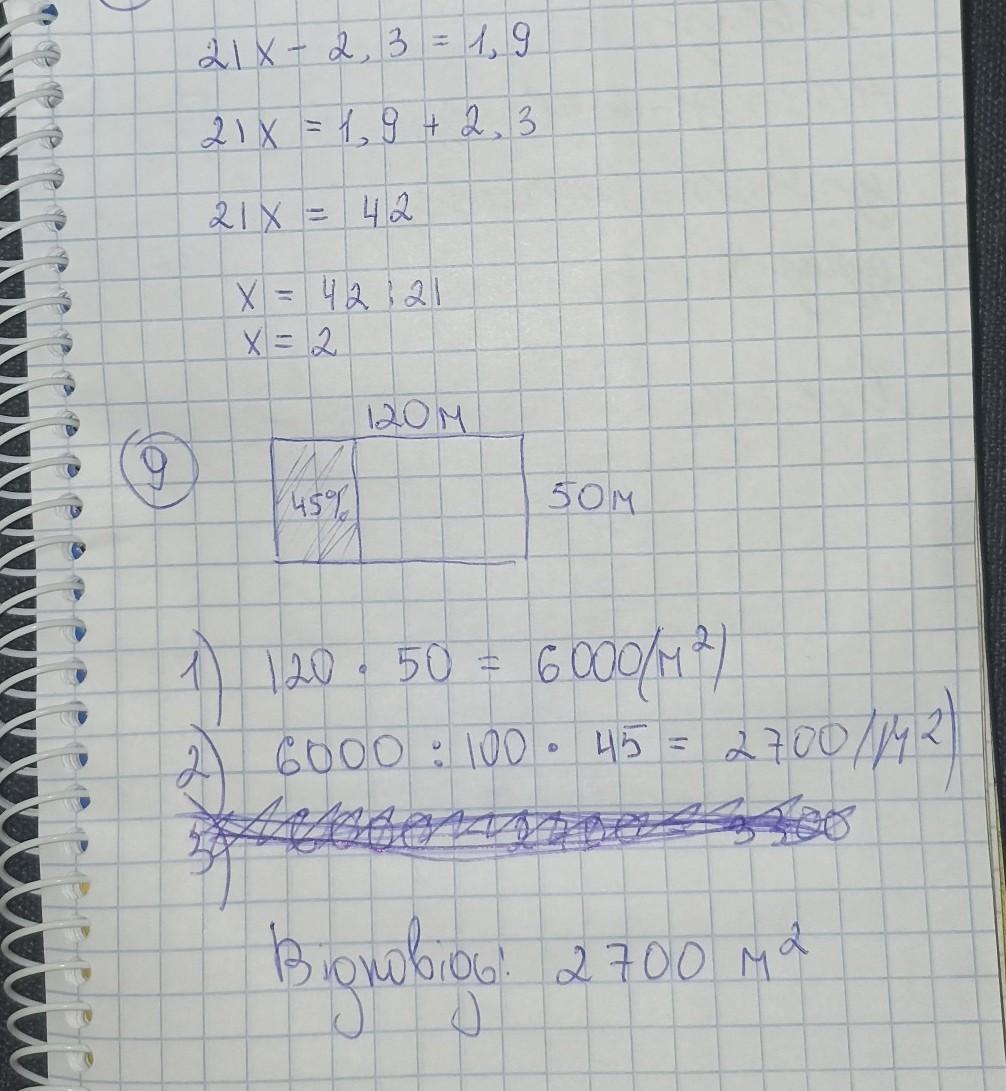 21x - 2,3 = 1,9
21x = 1,9 + 2,3
21x = 42
x = 42 : 21
x = 2
120м
9
45%
50м
1) 120 · 50 = 6000(м²)
2) 6000 : 100 · 45 = 2700(м²)
3)
Відповідь: 2700 м²